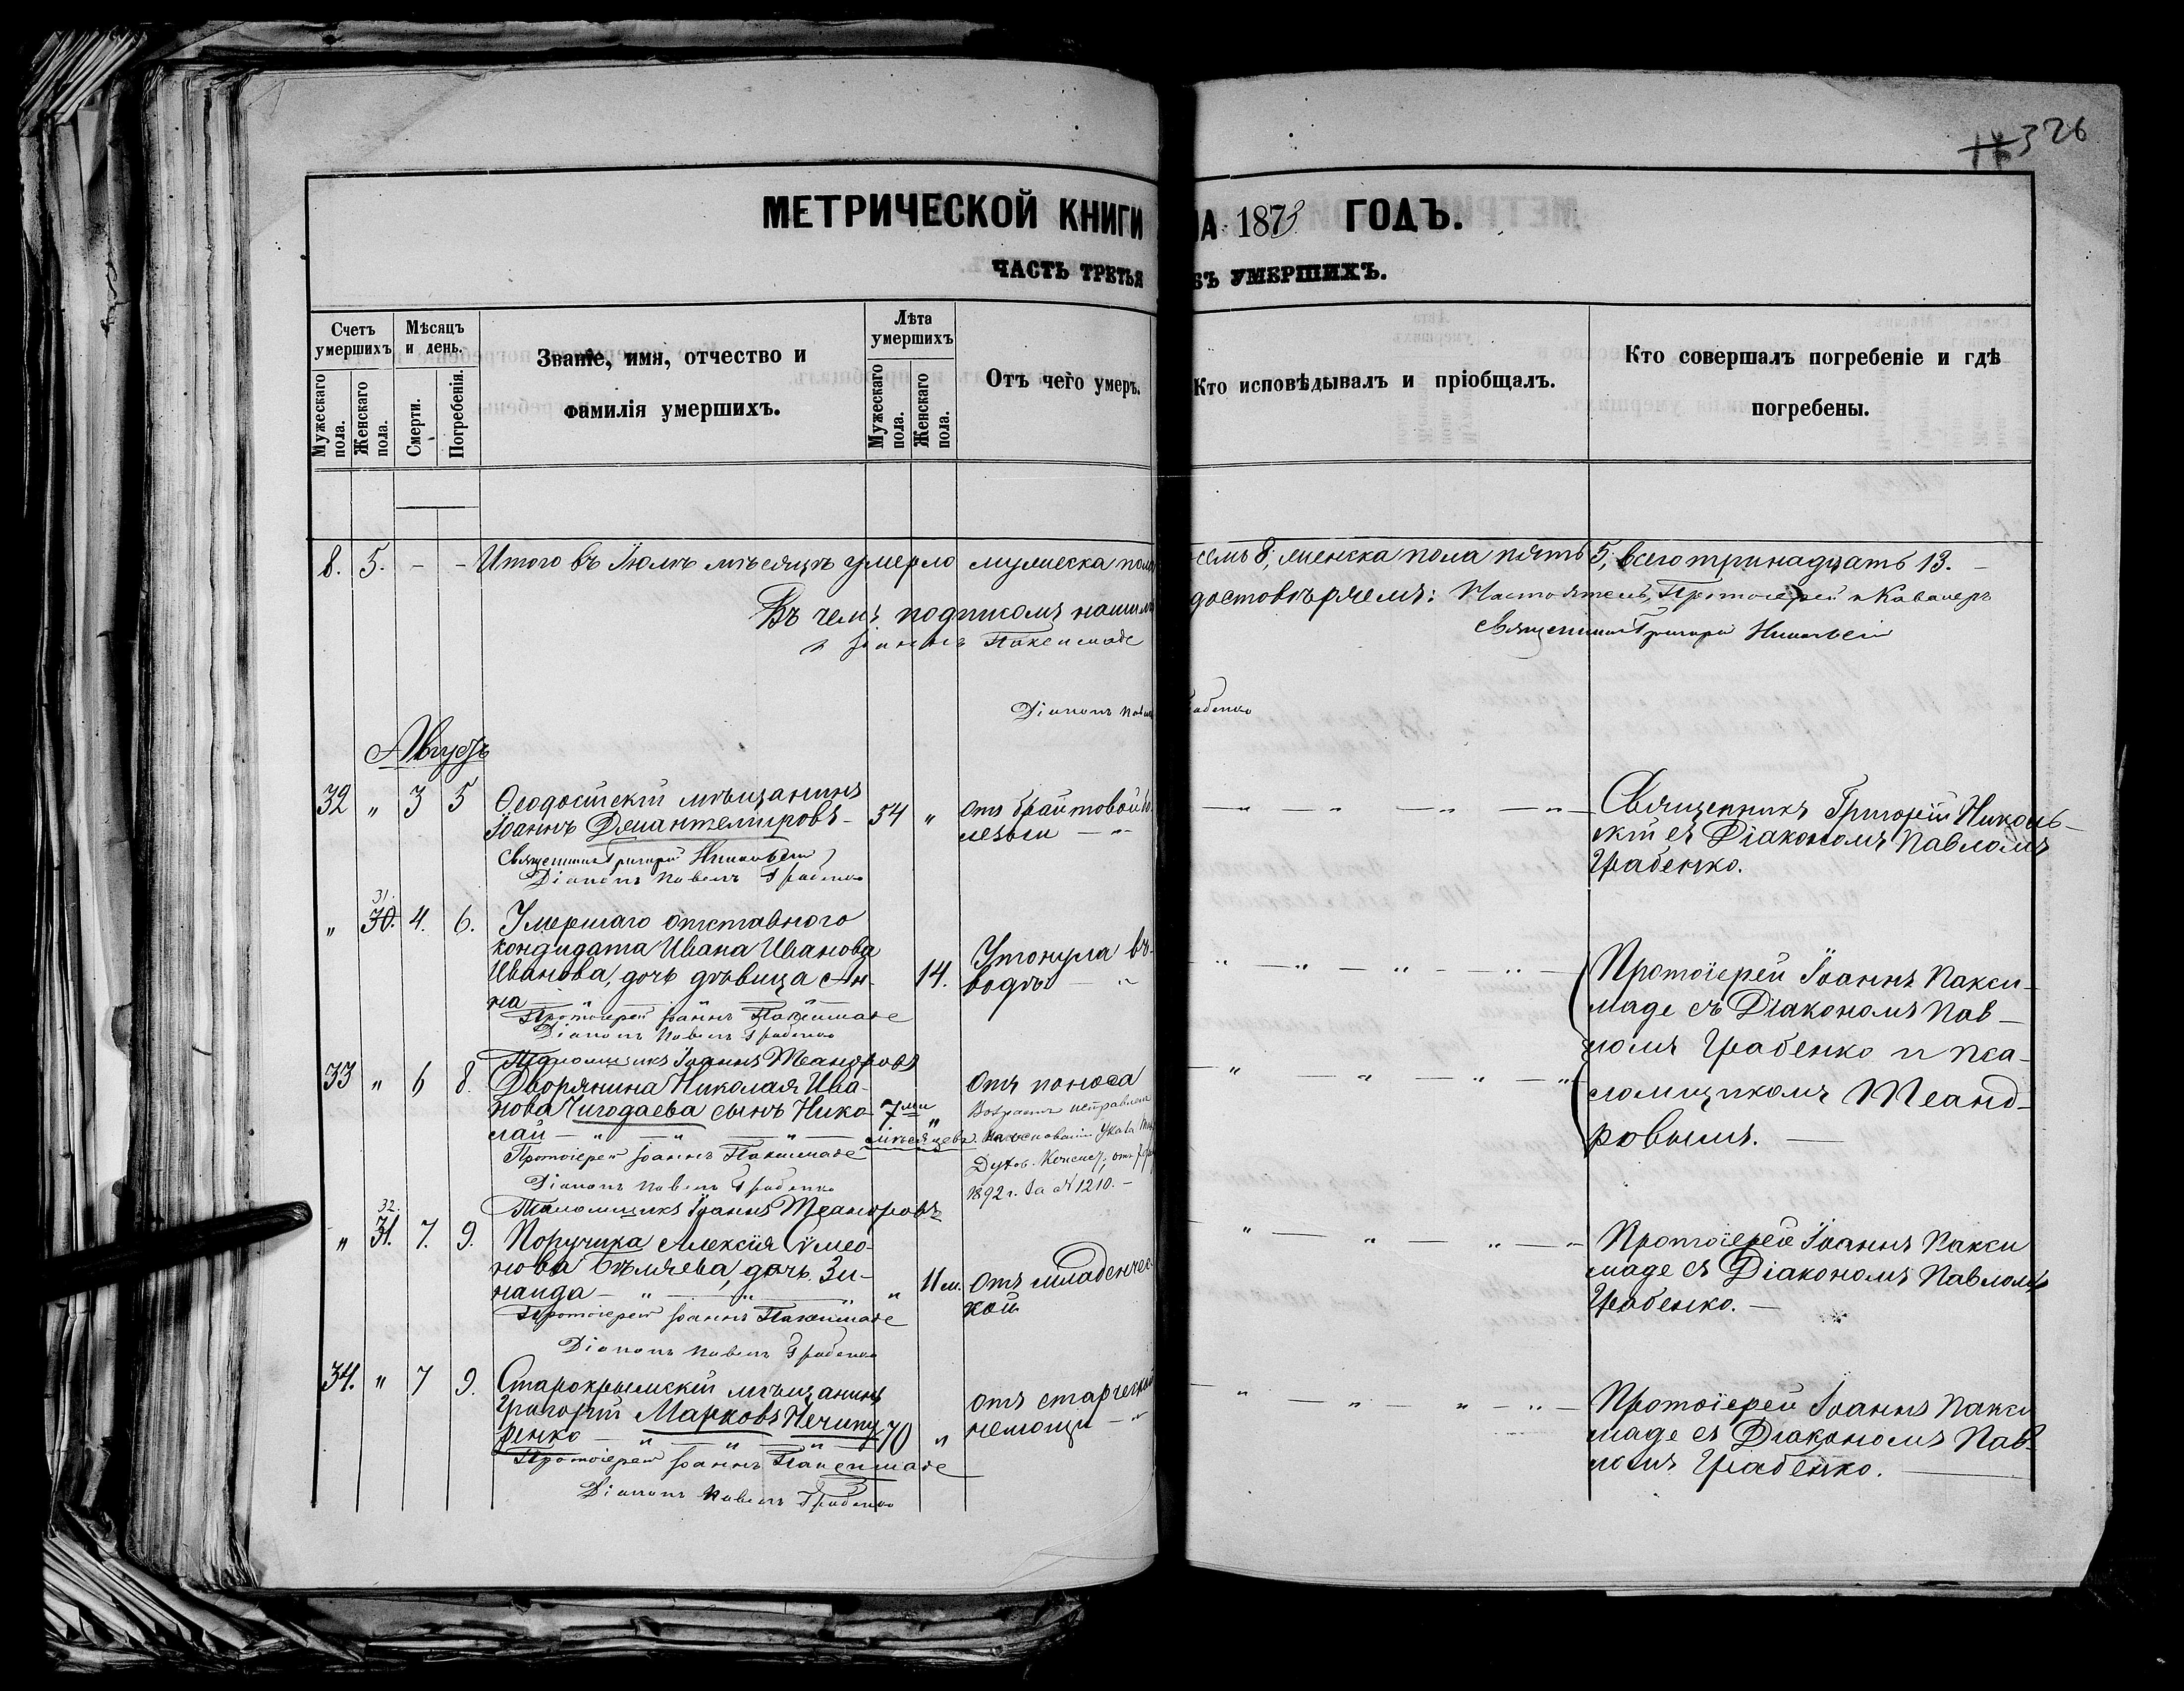 326
МЕТРИЧЕСКОЙ КНИГИ НА 1873 ГОДЪ.
ЧАСТЬ ТРЕТЬЯ ОБЪ УМЕРШИХЪ.
Счетъ умершихъ
Мужескаго пола.
Женскаго пола.
Мѣсяцъ и день.
Смерти.
Погребенія.
Званіе, имя, отчество и
фамилія умершихъ.
Лѣта умершихъ
Мужескаго пола.
Женскаго пола.
Отъ чего умеръ.
Кто исповѣдывалъ и пріобщалъ.
Кто совершалъ погребеніе и гдѣ
погребены.
8. 5. - - Итого въ Іюлѣ мѣсяцѣ умерло мужеска пола семь 8, женска пола пять 5, всего тринадцать 13. -
Въ чемъ подписомъ нашимъ достовѣряемъ: Настоятель, Протоіерей и Кавалеръ
Іоаннъ Паксимаде Священникъ Григорій Никольскій
Діаконъ Павелъ Грабенко
Августъ
32 " 3 5 Ѳеодосійскій мѣщанинъ
Іоаннъ Джантемировъ - 54 "
отъ брайтовой бо
лѣзни - "
Священникъ Григорій Никольскій
Діаконъ Павелъ Грабенко
Священникъ Григорій Николь-
скій съ Діакономъ Павломъ
Грабенко.
31.
" 30. 4. 6. Умершаго отставного
кондидата Ивана Иванова
Иванова, дочь дѣвица Ан-
на 14.
Утонула въ
водѣ - "
Протоіерей Іоаннъ Паксимаде
Діаконъ Павелъ Грабенко
Псаломщикъ Іоаннъ Теандровъ
Протоіерей Іоаннъ Пакси-
маде съ Діакономъ Пав-
ломъ Грабенко и пса-
ломщикомъ Теанд-
ровымъ.
33 " 6 8. Дворянина Николая Ива-
нова Чигодаева сынъ Нико-
лай - " 7ми "
мѣсяцевъ
Отъ поноса
Возрастъ исправленъ
на основаніи Указа
Духов. Консист. отъ 7
1892 г. за № 1210. -
Протоіерей Іоаннъ Паксимаде
Діаконъ Павелъ Грабенко
Псаломщикъ Іоаннъ Теандровъ
32.
" 31. 7. 9. Поручика Алексія Сѵмео-
нова Бѣляева, дочь Зи-
наида - " " 11 м.
отъ младенчес
кой
Протоіерей Іоаннъ Паксимаде
Діаконъ Павелъ Грабенко
Протоіерей Іоаннъ Пакси
маде съ Діакономъ Павломъ
Грабенко. -
34. " 7 9. Старокрымскій мѣщанинъ
Григорій Марковъ Нечипу
ренко - " 70 "
отъ старческой
немощи - "
Протоіерей Іоаннъ Паксимаде
Діаконъ Павелъ Грабенко
Протоіерей Іоаннъ Пакси
маде съ Діакономъ Пав-
ломъ Грабенко.